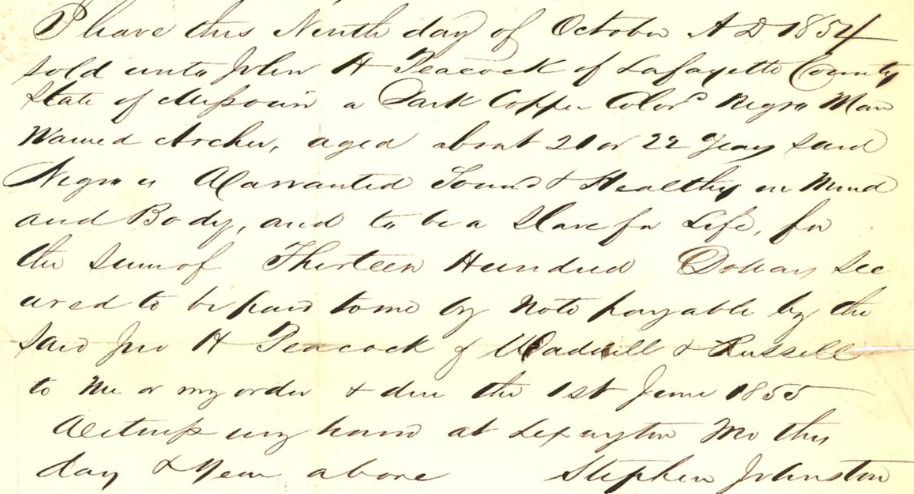 I have this Ninth day of October A D 1854
sold unto John H Peacock of Lafayette County
State of Missouri a Dark Copper Colord Negro Man
Named Archer, aged about 21 or 22 years said
Negro is Warranted Sound & Healthy in Mind
and Body, and to be a Slave for Life, for
the sum of Thirteen Hundred Dollars sec
ured to be paid to me by note payable by the
said Jno H Peacock & Waddell & Russell
to me or my order & due the 1st June 1855
Witness my hand at Lexington Mo this
day & year above Stephen Johnston